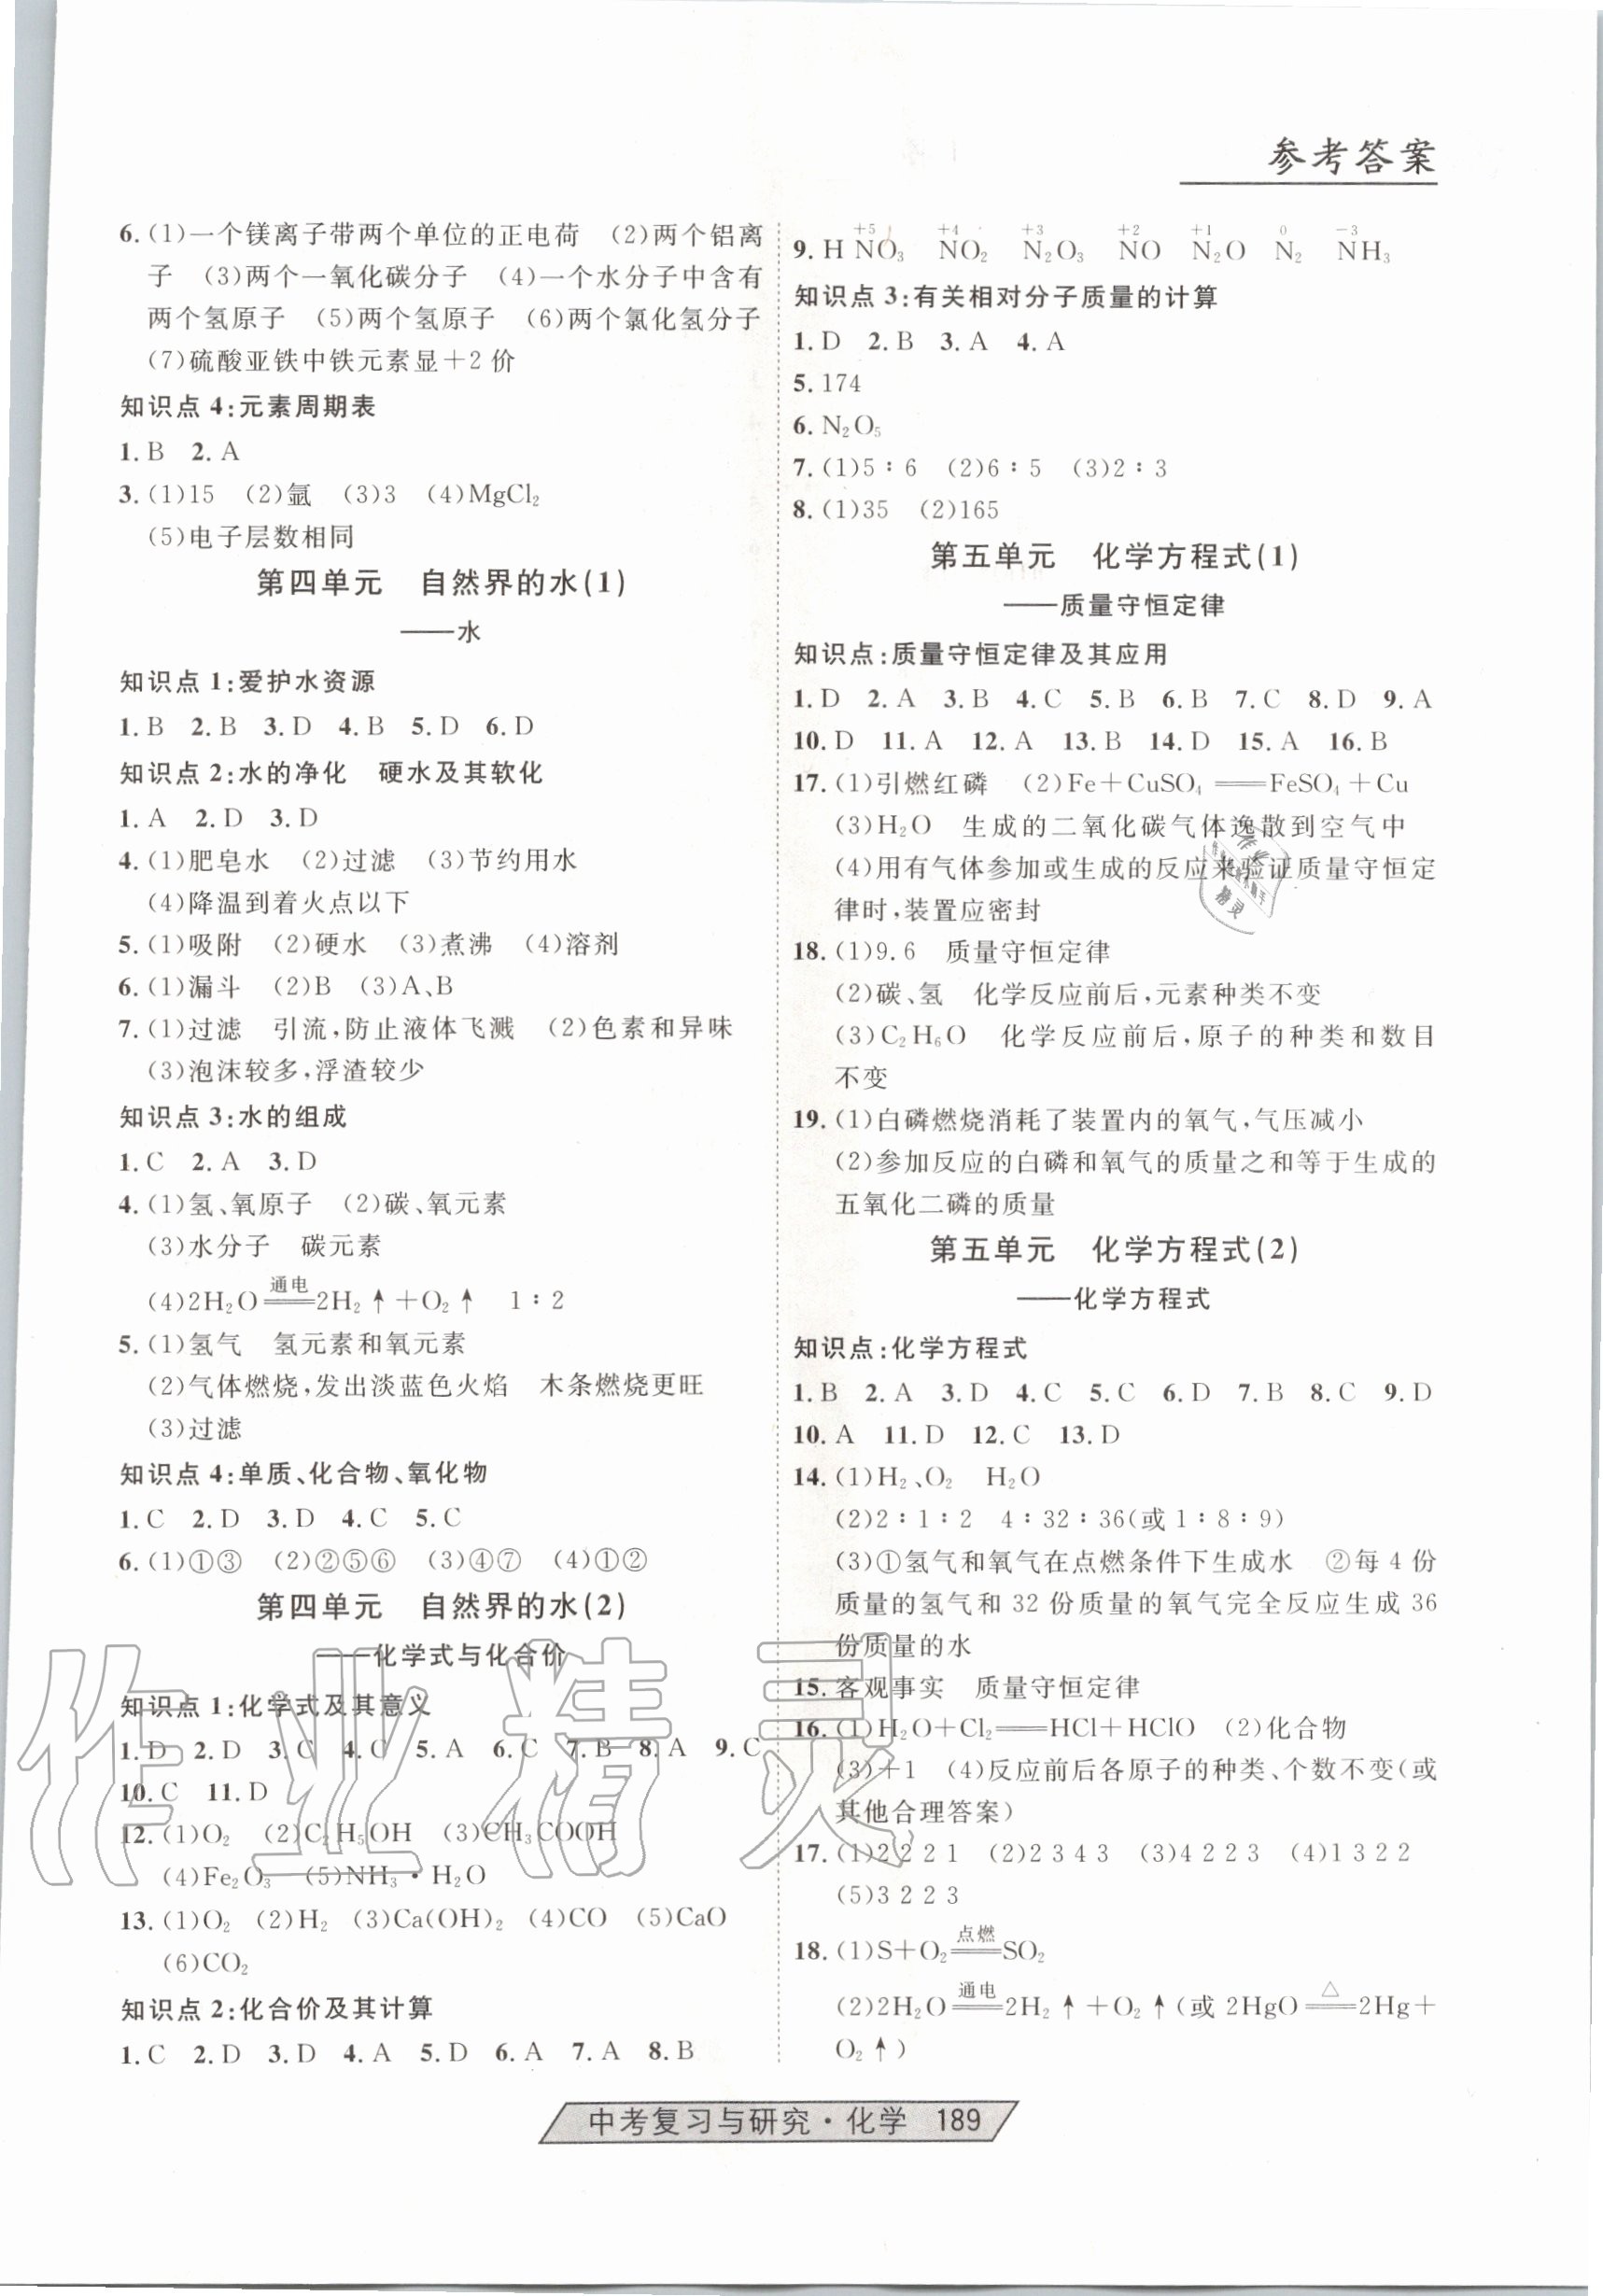 参考答案
6.(1)一个镁离子带两个单位的正电荷 (2)两个铝离
子 (3)两个一氧化碳分子 (4)一个水分子中含有
两个氢原子 (5)两个氢原子 (6)两个氯化氢分子
(7)硫酸亚铁中铁元素显+2价
知识点4:元素周期表
1.B 2.A
3.(1)15 (2)氩 (3)3 (4)MgCl₂
(5)电子层数相同
第四单元 自然界的水(1)
——水
知识点1:爱护水资源
1.B 2.B 3.D 4.B 5.D 6.D
知识点2:水的净化 硬水及其软化
1.A 2.D 3.D
4.(1)肥皂水 (2)过滤 (3)节约用水
(4)降温到着火点以下
5.(1)吸附 (2)硬水 (3)煮沸 (4)溶剂
6.(1)漏斗 (2)B (3)A、B
7.(1)过滤 引流,防止液体飞溅 (2)色素和异味
(3)泡沫较多,浮渣较少
知识点3:水的组成
1.C 2.A 3.D
4.(1)氢、氧原子 (2)碳、氧元素
(3)水分子 碳元素
(4)2H₂O═通电═2H₂↑+O₂↑ 1∶2
5.(1)氢气 氢元素和氧元素
(2)气体燃烧,发出淡蓝色火焰 木条燃烧更旺
(3)过滤
知识点4:单质、化合物、氧化物
1.C 2.D 3.D 4.C 5.C
6.(1)①③ (2)②⑤⑥ (3)④⑦ (4)①②
第四单元 自然界的水(2)
——化学式与化合价
知识点1:化学式及其意义
1.D 2.D 3.C 4.C 5.A 6.C 7.B 8.A 9.C
10.C 11.D
12.(1)O₂ (2)C₂H₅OH (3)CH₃COOH
(4)Fe₂O₃ (5)NH₃·H₂O
13.(1)O₂ (2)H₂ (3)Ca(OH)₂ (4)CO (5)CaO
(6)CO₂
知识点2:化合价及其计算
1.C 2.D 3.D 4.A 5.D 6.A 7.A 8.B
+5 +4 +3 +2 +1 0 −3
9.H NO₃ NO₂ N₂O₃ NO N₂O N₂ NH₃
知识点3:有关相对分子质量的计算
1.D 2.B 3.A 4.A
5.174
6.N₂O₅
7.(1)5∶6 (2)6∶5 (3)2∶3
8.(1)35 (2)165
第五单元 化学方程式(1)
——质量守恒定律
知识点:质量守恒定律及其应用
1.D 2.A 3.B 4.C 5.B 6.B 7.C 8.D 9.A
10.D 11.A 12.A 13.B 14.D 15.A 16.B
17.(1)引燃红磷 (2)Fe+CuSO₄══FeSO₄+Cu
(3)H₂O 生成的二氧化碳气体逸散到空气中
(4)用有气体参加或生成的反应来验证质量守恒定
律时,装置应密封
18.(1)9.6 质量守恒定律
(2)碳、氢 化学反应前后,元素种类不变
(3)C₂H₆O 化学反应前后,原子的种类和数目
不变
19.(1)白磷燃烧消耗了装置内的氧气,气压减小
(2)参加反应的白磷和氧气的质量之和等于生成的
五氧化二磷的质量
第五单元 化学方程式(2)
——化学方程式
知识点:化学方程式
1.B 2.A 3.D 4.C 5.C 6.D 7.B 8.C 9.D
10.A 11.D 12.C 13.D
14.(1)H₂、O₂ H₂O
(2)2∶1∶2 4∶32∶36(或1∶8∶9)
(3)①氢气和氧气在点燃条件下生成水 ②每4份
质量的氢气和32份质量的氧气完全反应生成36
份质量的水
15.客观事实 质量守恒定律
16.(1)H₂O+Cl₂══HCl+HClO (2)化合物
(3)+1 (4)反应前后各原子的种类、个数不变(或
其他合理答案)
17.(1)2 2 2 1 (2)2 3 4 3 (3)4 2 2 3 (4)1 3 2 2
(5)3 2 2 3
18.(1)S+O₂═点燃═SO₂
(2)2H₂O═通电═2H₂↑+O₂↑(或2HgO═△═2Hg+
O₂↑)
作业精灵
中考复习与研究·化学 189